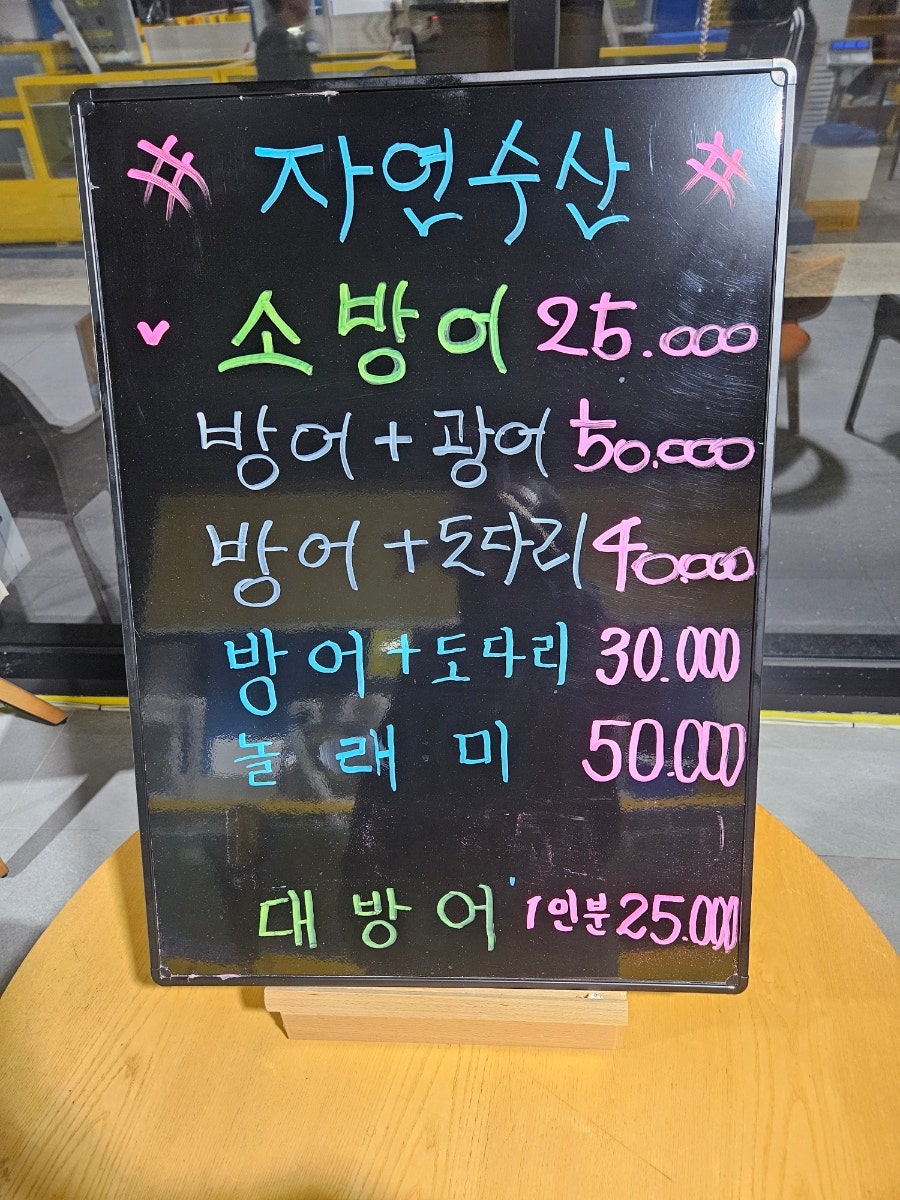 # 자연수산 #
소방어 25.000
방어+광어 50.000
방어+도다리 40.000
방어+도다리 30.000
놀래미 50.000
대방어 1인분 25.000